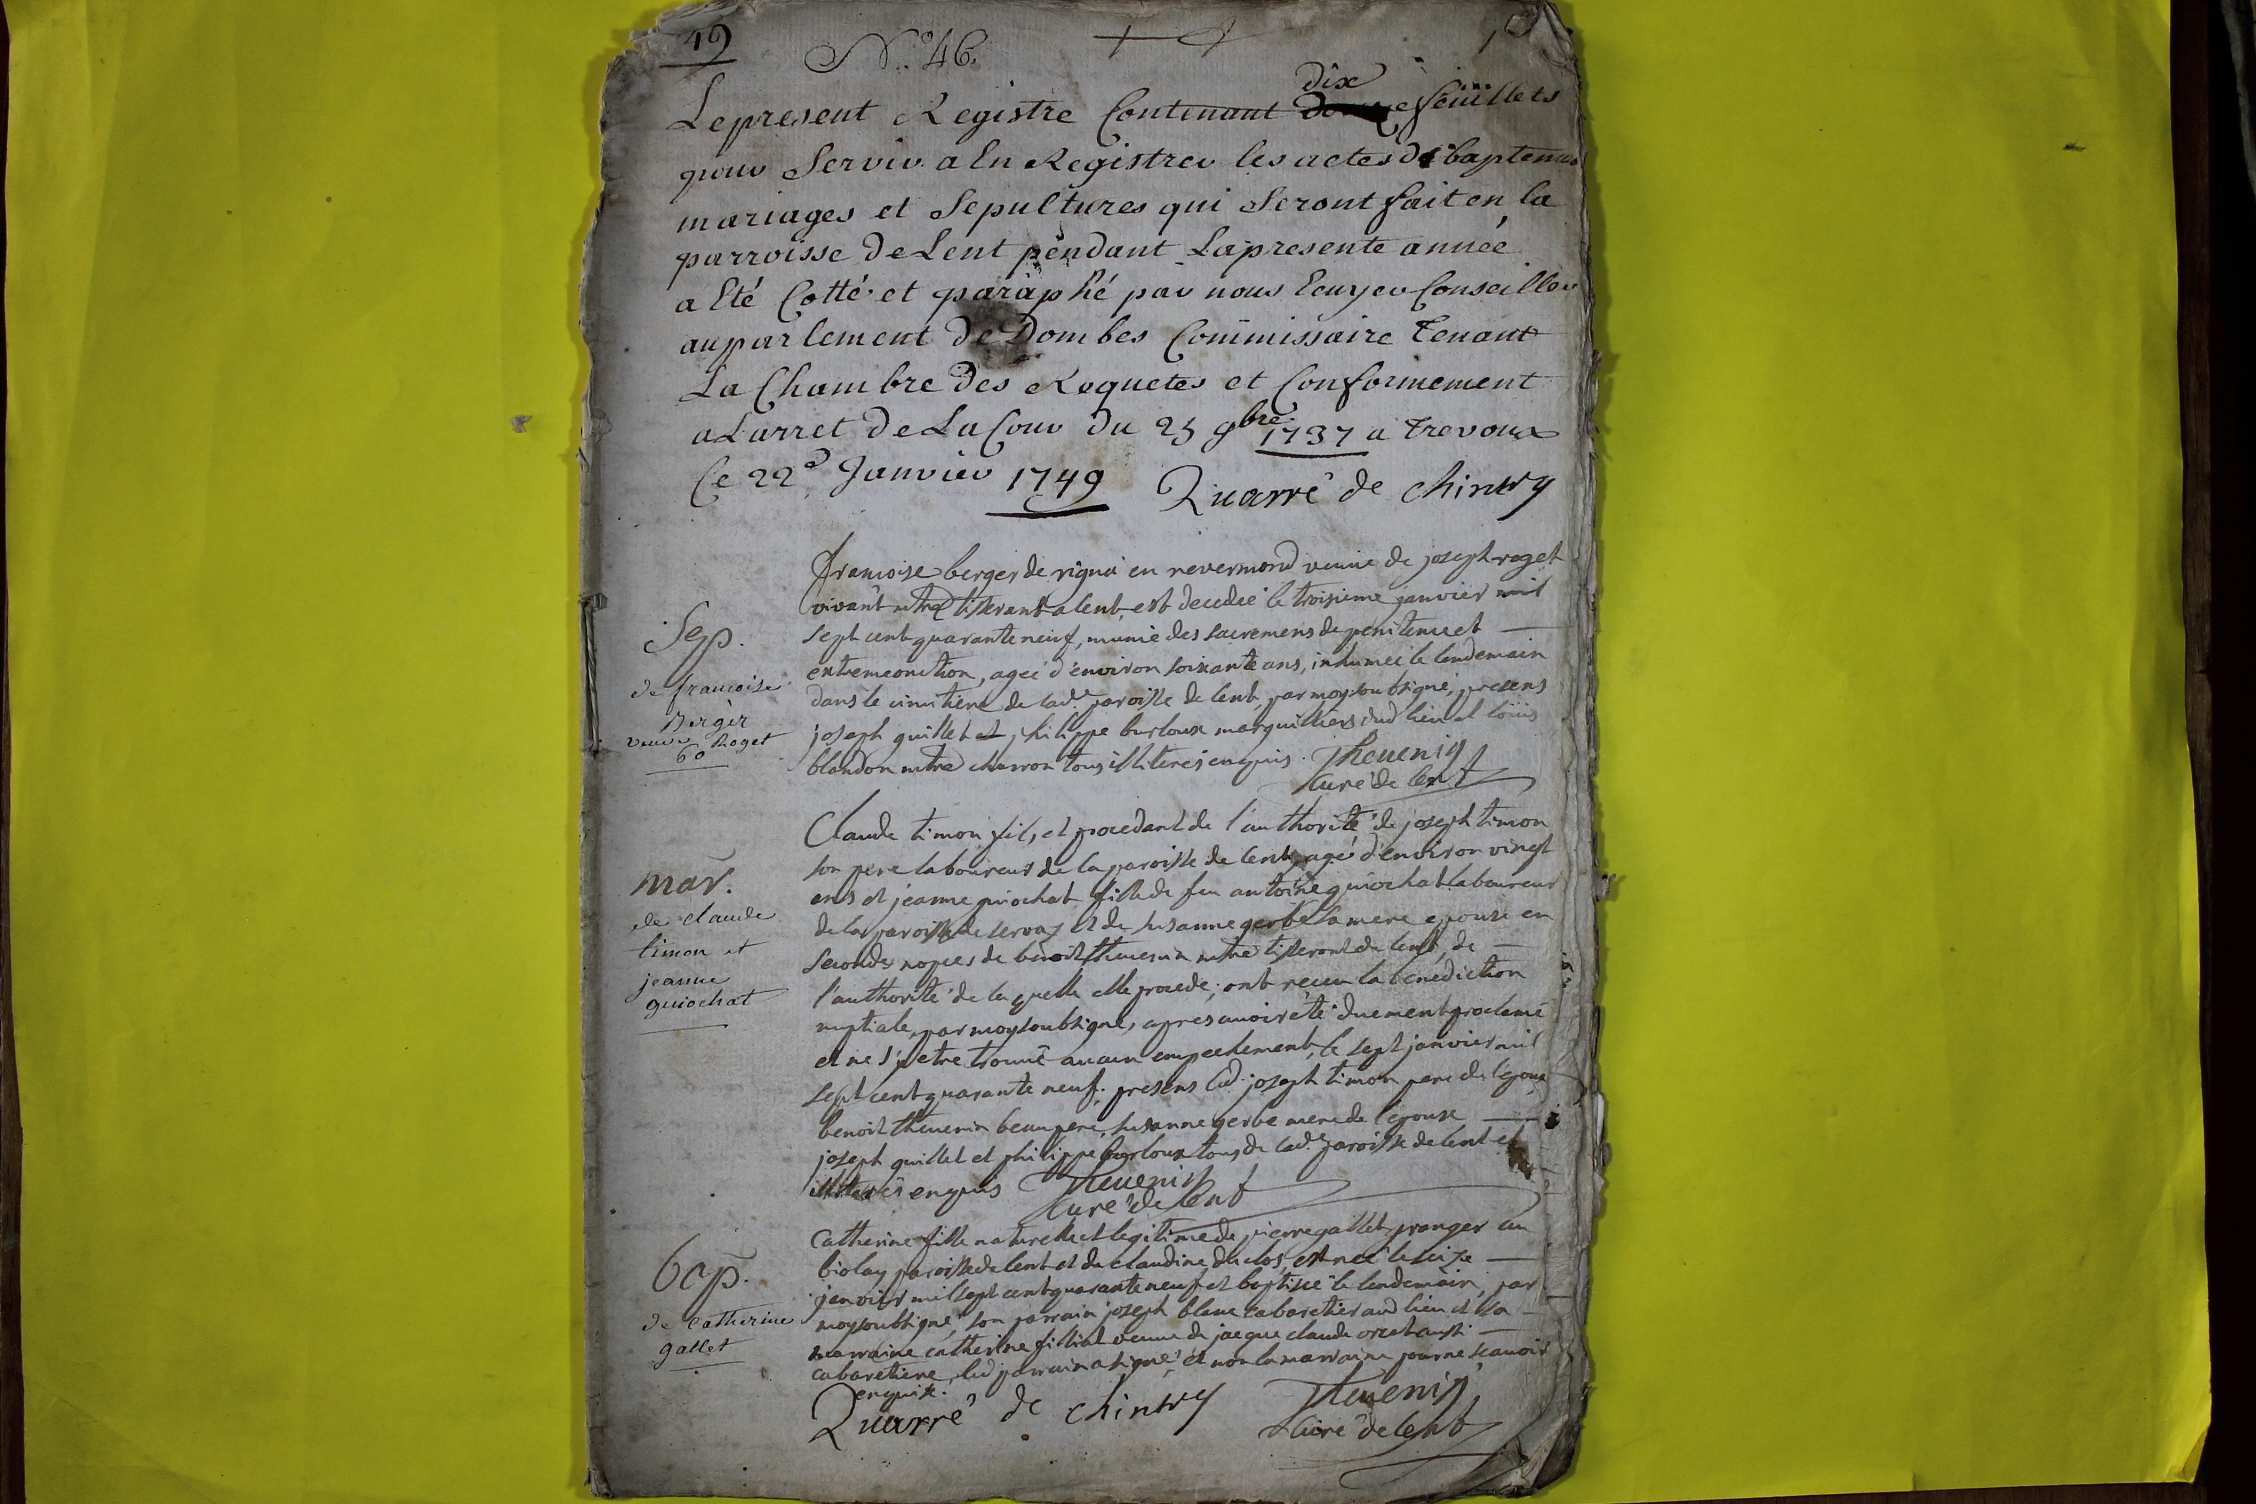 49 N.° 46.
dix
Le present Registre Contenant feüillets
pour Servir a En Registrer les actes de baptemes
mariages et Sepultures qui Seront fait en la
parroisse de Lent pendant La presente année
a Eté Cotté et paraphé par nous Ecuyer Conseiller
au parlement de Dombes Commissaire Tenant
La Chambre des Requetes et Conformement
a L'arret de La Cour du 25 9bre 1737 a Trevoux
Ce 22e Janvier 1749 Quarré de Chintry
Sep.
de francoise
Berger
veuve Roget
60
francoise berger de rigna en revermond veuve de joseph roget
vivant mtre tisserant a lent, est decedée le troisieme janvier mil
sept cent quarante neuf, munie des sacremens de penitence et
extremeonction, agée d'environ soixante ans, inhumée le lendemain
dans le cimitiere de lad.e paroisse de lent, par moy soubsigné, presens
joseph quillet et philippe burloux marguilliers dud lieu et loüis
blondon mtre charron tous illiterés enquis. Theuenin
curé de lent
mar.
de claude
timon et
jeanne
guiochat
Claude timon fils, et procedant de l'authorité de joseph timon
son pere laboureur de la paroisse de lent, agé d'environ vingt
ans et jeanne guiochat fille de feu antoine guiochat laboureur
de la paroisse de servas et de susanne gerbe sa mere epouse en
secondes nopces de benoit theuenin mtre tisserant de lent, de
l'authorité de la quelle elle procede; ont receu la benediction
nuptiale, par moy soubsigné, apres auoir été duement proclamé
et ne s'y etre trouué aucun empechement, le sept janvier mil
sept cent quarante neuf. presens led. joseph timon pere de l'epoux
benoit theuenin beaupere, susanne gerbe mere de l'epouse
joseph quillet et philippe burloux tous de lad.e paroisse de lent et
illiterés enquis Theuenin
curé de lent
bap.
de catherine
gallet
Catherine fille naturelle et legitime de pierre gallet granger au
biolay paroisse de lent et de claudine duclos, est neé le seize
janvier mil sept cent quarante neuf et baptisée le lendemain, par
moy soubsigné, son parrain joseph blanc cabaretier aud lieu et sa
marraine catherine filliat veuue de jacque claude orset aussi
cabaretiere, led parrain a signé, et non la marraine pour ne scauoir
enquise.
Quarré de Chintry Theuenin
Curé de lent